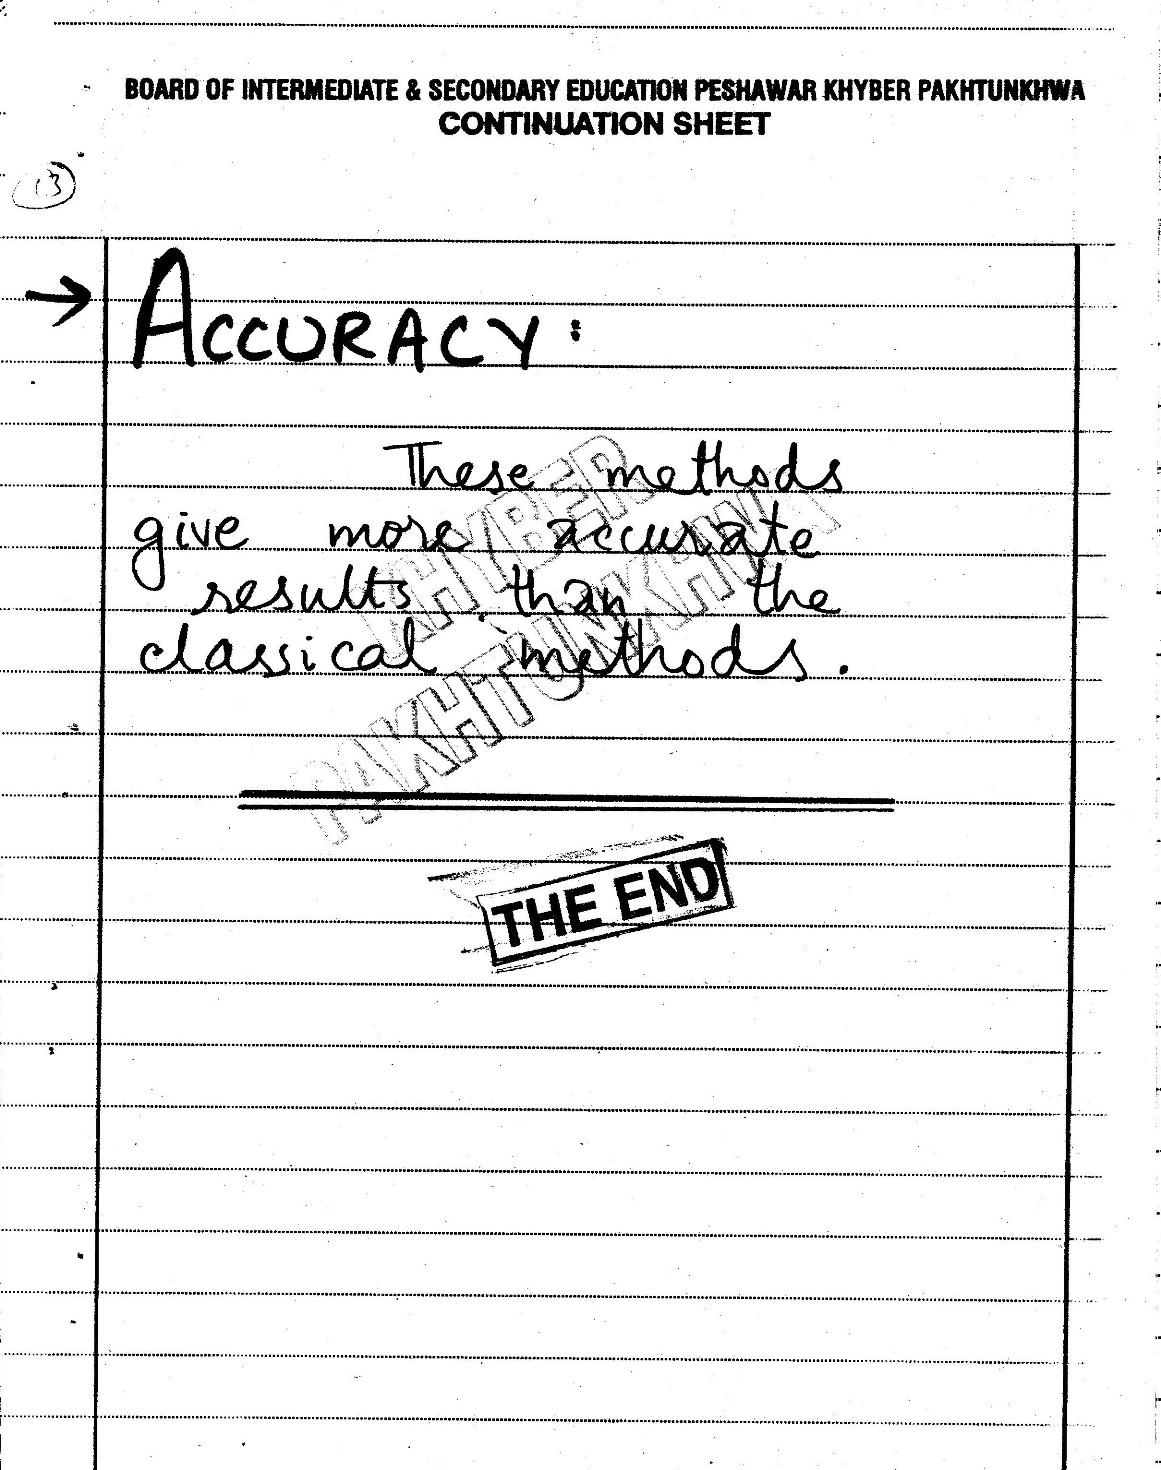 BOARD OF INTERMEDIATE & SECONDARY EDUCATION PESHAWAR KHYBER PAKHTUNKHWA
CONTINUATION SHEET
13
→ ACCURACY:
These methods
give more accurate
results than the
classical methods.
KHYBER
PAKHTUNKHWA
THE END